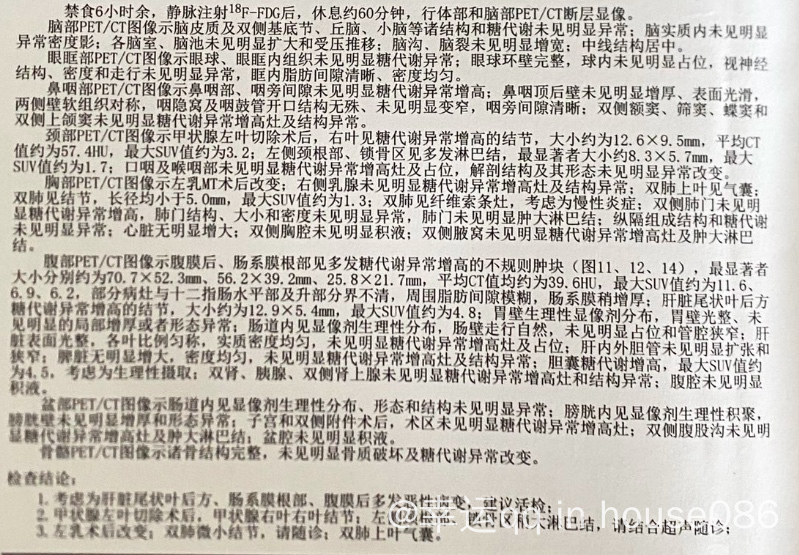 禁食6小时余，静脉注射¹⁸F-FDG后，休息约60分钟，行体部和脑部PET/CT断层显像。
脑部PET/CT图像示脑皮质及双侧基底节、丘脑、小脑等诸结构和糖代谢未见明显异常；脑实质内未见明显
异常密度影；各脑室、脑池未见明显扩大和受压推移；脑沟、脑裂未见明显增宽；中线结构居中。
眼眶部PET/CT图像示眼球、眼眶内组织未见明显糖代谢异常；眼球环壁完整，球内未见明显占位，视神经
结构、密度和走行未见明显异常，眶内脂肪间隙清晰、密度均匀。
鼻咽部PET/CT图像示鼻咽部、咽旁间隙未见明显糖代谢异常增高；鼻咽顶后壁未见明显增厚、表面光滑，
两侧壁软组织对称，咽隐窝及咽鼓管开口结构无殊、未见明显变窄，咽旁间隙清晰；双侧额窦、筛窦、蝶窦和
双侧上颌窦未见明显糖代谢异常增高灶及结构异常。
颈部PET/CT图像示甲状腺左叶切除术后，右叶见糖代谢异常增高的结节，大小约为12.6×9.5mm，平均CT
值约为57.4HU，最大SUV值约为3.2；左侧颈根部、锁骨区见多发淋巴结，最显著者大小约8.3×5.7mm，最大
SUV值约为1.7；口咽及喉咽部未见明显糖代谢异常增高灶及占位，解剖结构及其形态未见明显异常改变。
胸部PET/CT图像示左乳MT术后改变；右侧乳腺未见明显糖代谢异常增高灶及结构异常；双肺上叶见气囊；
双肺见结节，长径均小于5.0mm，最大SUV值约为1.3；双肺见纤维索条灶，考虑为慢性炎症；双侧肺门未见明
显糖代谢异常增高，肺门结构、大小和密度未见明显异常，肺门未见明显肿大淋巴结；纵隔组成结构和糖代谢
未见明显异常；心脏无明显增大；双侧胸腔未见明显积液；双侧腋窝未见明显糖代谢异常增高灶及肿大淋巴
结。
腹部PET/CT图像示腹膜后、肠系膜根部见多发糖代谢异常增高的不规则肿块（图11、12、14），最显著者
大小分别约为70.7×52.3mm、56.2×39.2mm、25.8×21.7mm，平均CT值均约为39.6HU，最大SUV值约为11.6、
6.9、6.2，部分病灶与十二指肠水平部及升部分界不清，周围脂肪间隙模糊，肠系膜稍增厚；肝脏尾状叶后方
糖代谢异常增高的结节，大小约为12.9×5.4mm，最大SUV值约为4.8；胃壁生理性显像剂分布，胃壁光整、未
见明显的局部增厚或者形态异常；肠道内见显像剂生理性分布，肠壁走行自然，未见明显占位和管腔狭窄；肝
脏表面光整，各叶比例匀称，实质密度均匀，未见明显糖代谢异常增高灶及占位；肝内外胆管未见明显扩张和
狭窄；脾脏无明显增大，密度均匀，未见明显糖代谢异常增高灶及结构异常；胆囊糖代谢增高，最大SUV值约
为4.5，考虑为生理性摄取；双肾、胰腺、双侧肾上腺未见明显糖代谢异常增高灶和结构异常；腹腔未见明显
积液。
盆部PET/CT图像示肠道内见显像剂生理性分布、形态和结构未见明显异常；膀胱内见显像剂生理性积聚，
膀胱壁未见明显增厚和形态异常；子宫和双侧附件术后，术区未见明显糖代谢异常增高灶；双侧腹股沟未见明
显糖代谢异常增高灶及肿大淋巴结；盆腔未见明显积液。
骨骼PET/CT图像示诸骨结构完整，未见明显骨质破坏及糖代谢异常改变。
检查结论：
1. 考虑为肝脏尾状叶后方、肠系膜根部、腹膜后多发恶性病变，建议活检；
2. 甲状腺左叶切除术后，甲状腺右叶右叶结节；左 淋巴结，请结合超声随诊；
3. 左乳术后改变；双肺微小结节，请随诊；双肺上叶气囊。
in_house086